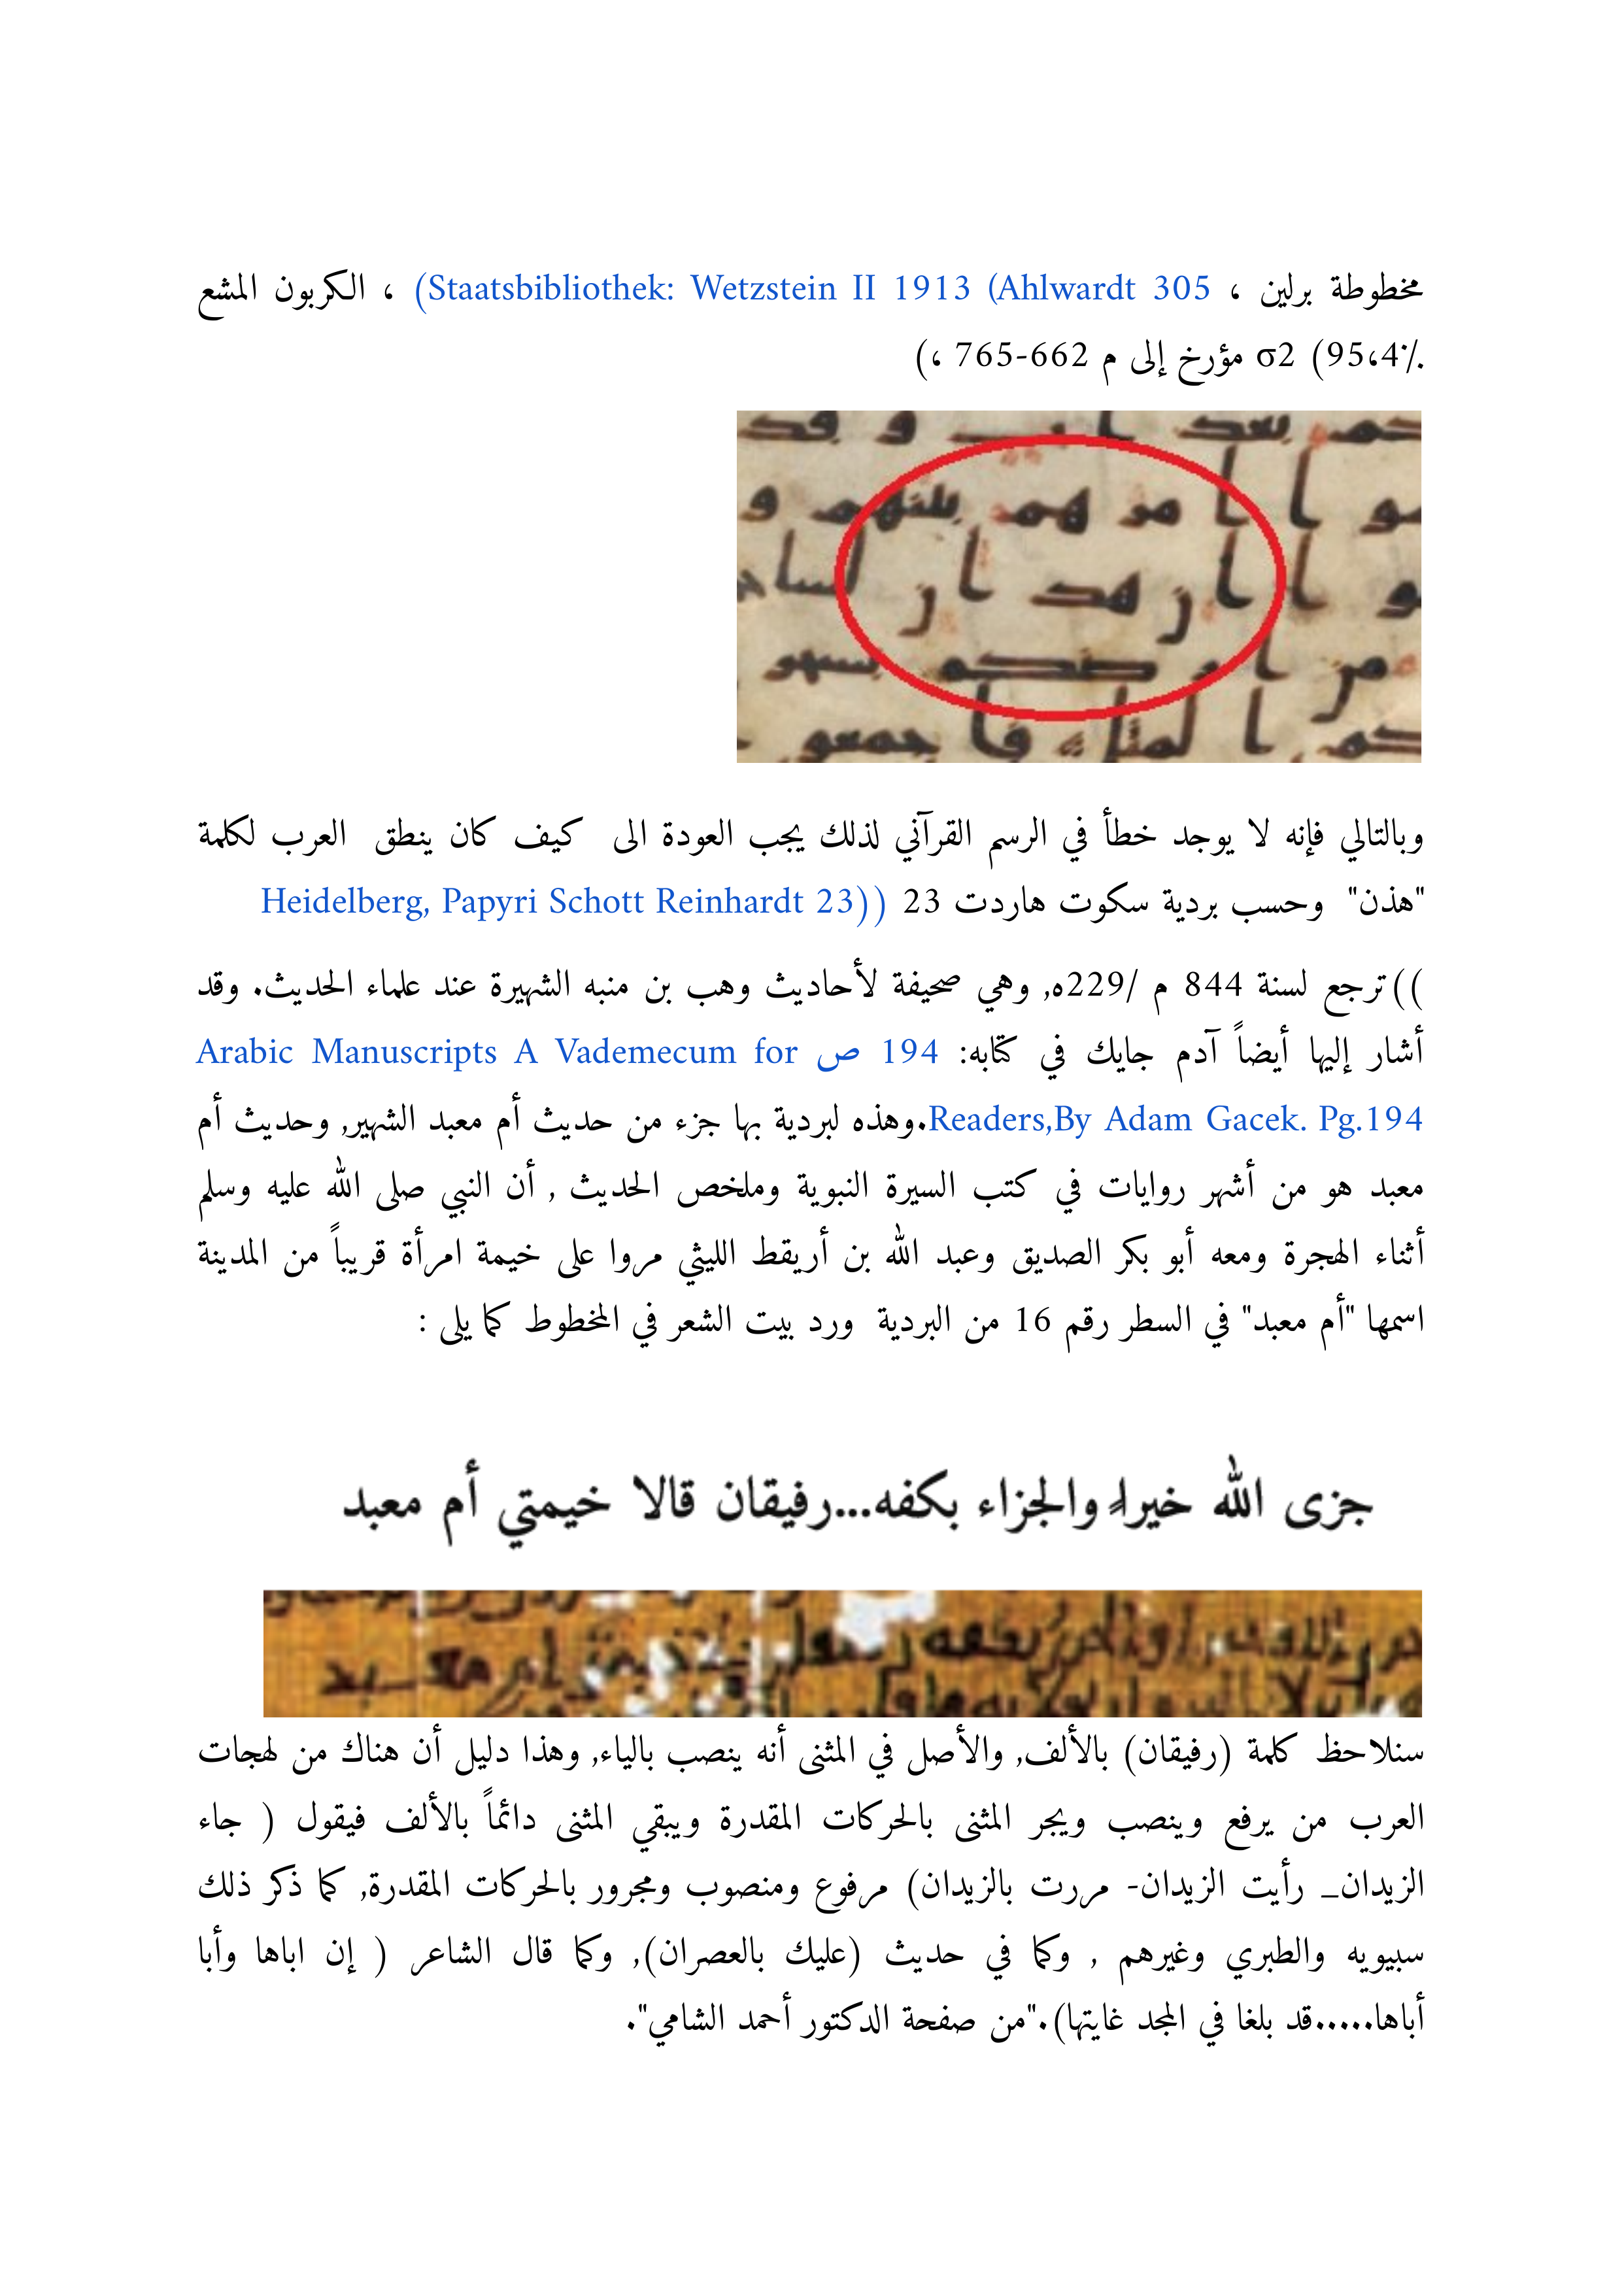 مخطوطة برلين ، Staatsbibliothek: Wetzstein II 1913 (Ahlwardt 305) ، الكربون المشع
95،4٪) σ2 مؤرخ إلى م 662-765 ،)
وبالتالي فإنه لا يوجد خطأ في الرسم القرآني لذلك يجب العودة الى كيف كان ينطق العرب لكلمة
"هذن" وحسب بردية سكوت هاردت 23 ((Heidelberg, Papyri Schott Reinhardt 23
))ترجع لسنة 844 م /229ه, وهي صحيفة لأحاديث وهب بن منبه الشهيرة عند علماء الحديث. وقد
أشار إليها أيضاً آدم جايك في كتابه: 194 ص Arabic Manuscripts A Vademecum for
Readers,By Adam Gacek. Pg.194.وهذه لبردية بها جزء من حديث أم معبد الشهير, وحديث أم
معبد هو من أشهر روايات في كتب السيرة النبوية وملخص الحديث , أن النبي صلى الله عليه وسلم
أثناء الهجرة ومعه أبو بكر الصديق وعبد الله بن أريقط الليثي مروا على خيمة امرأة قريباً من المدينة
اسمها "أم معبد" في السطر رقم 16 من البردية ورد بيت الشعر في المخطوط كما يلى :
جزى الله خيرا والجزاء بكفه...رفيقان قالا خيمتي أم معبد
سنلاحظ كلمة (رفيقان) بالألف, والأصل في المثنى أنه ينصب بالياء, وهذا دليل أن هناك من لهجات
العرب من يرفع وينصب ويجر المثنى بالحركات المقدرة ويبقي المثنى دائماً بالألف فيقول ( جاء
الزيدان_ رأيت الزيدان- مررت بالزيدان) مرفوع ومنصوب ومجرور بالحركات المقدرة, كما ذكر ذلك
سيبويه والطبري وغيرهم , وكما في حديث (عليك بالعصران), وكما قال الشاعر ( إن اباها وأبا
أباها.....قد بلغا في المجد غايتها)."من صفحة الدكتور أحمد الشامي".